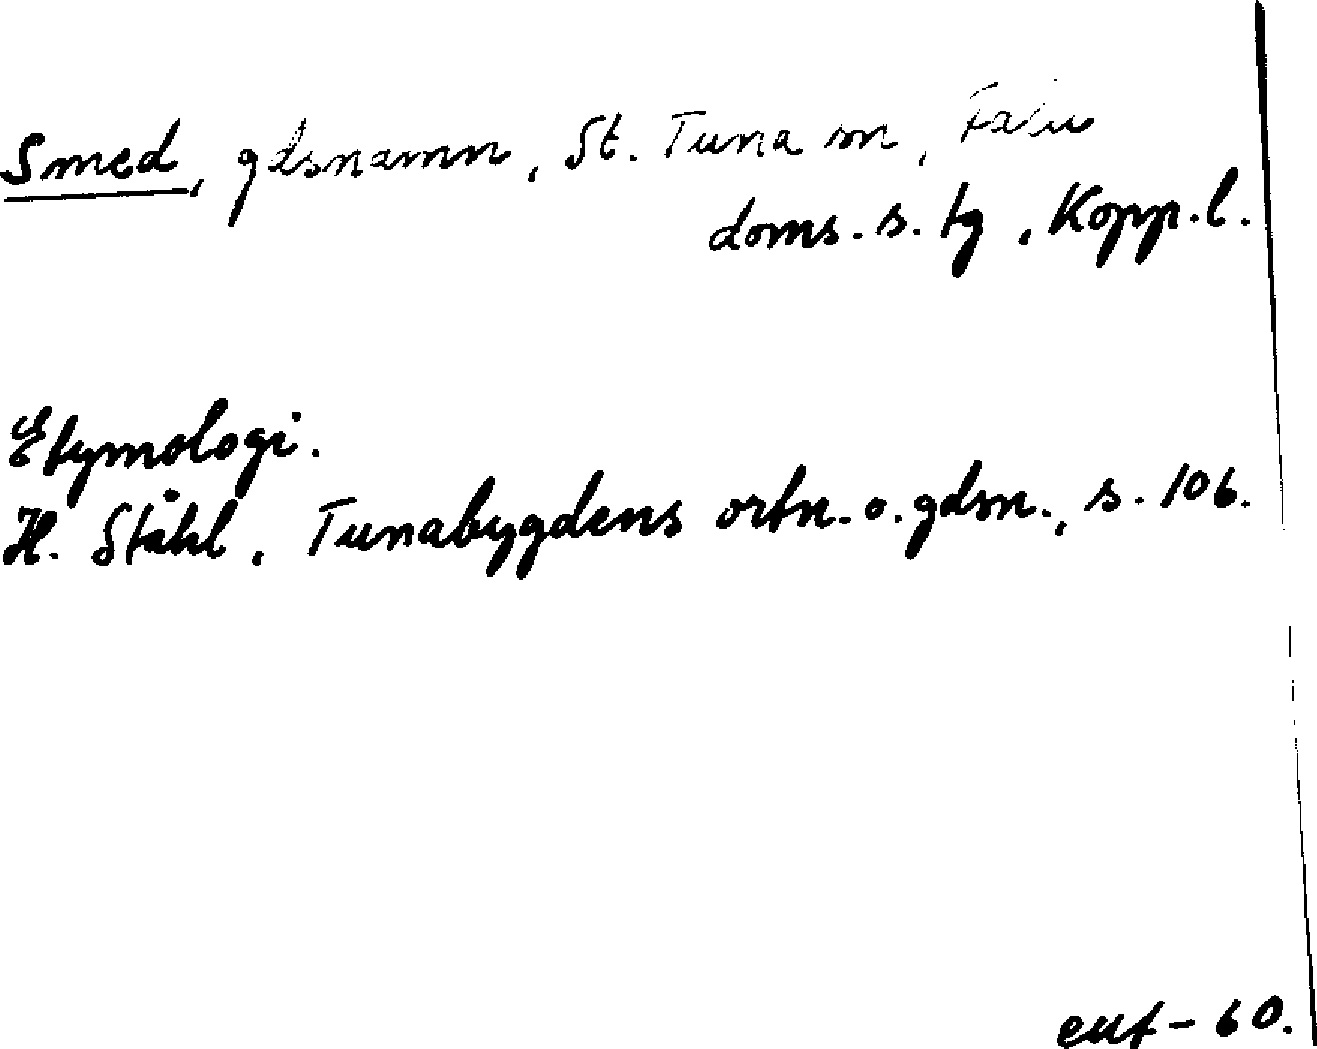 Smed, gdsnamn, St. Tuna sn, Falu
doms. s. tg, Kopp. l.
Etymologi.
H. Ståhl, Tunabygdens ortn. o. gdsn., s. 106.
- 60.